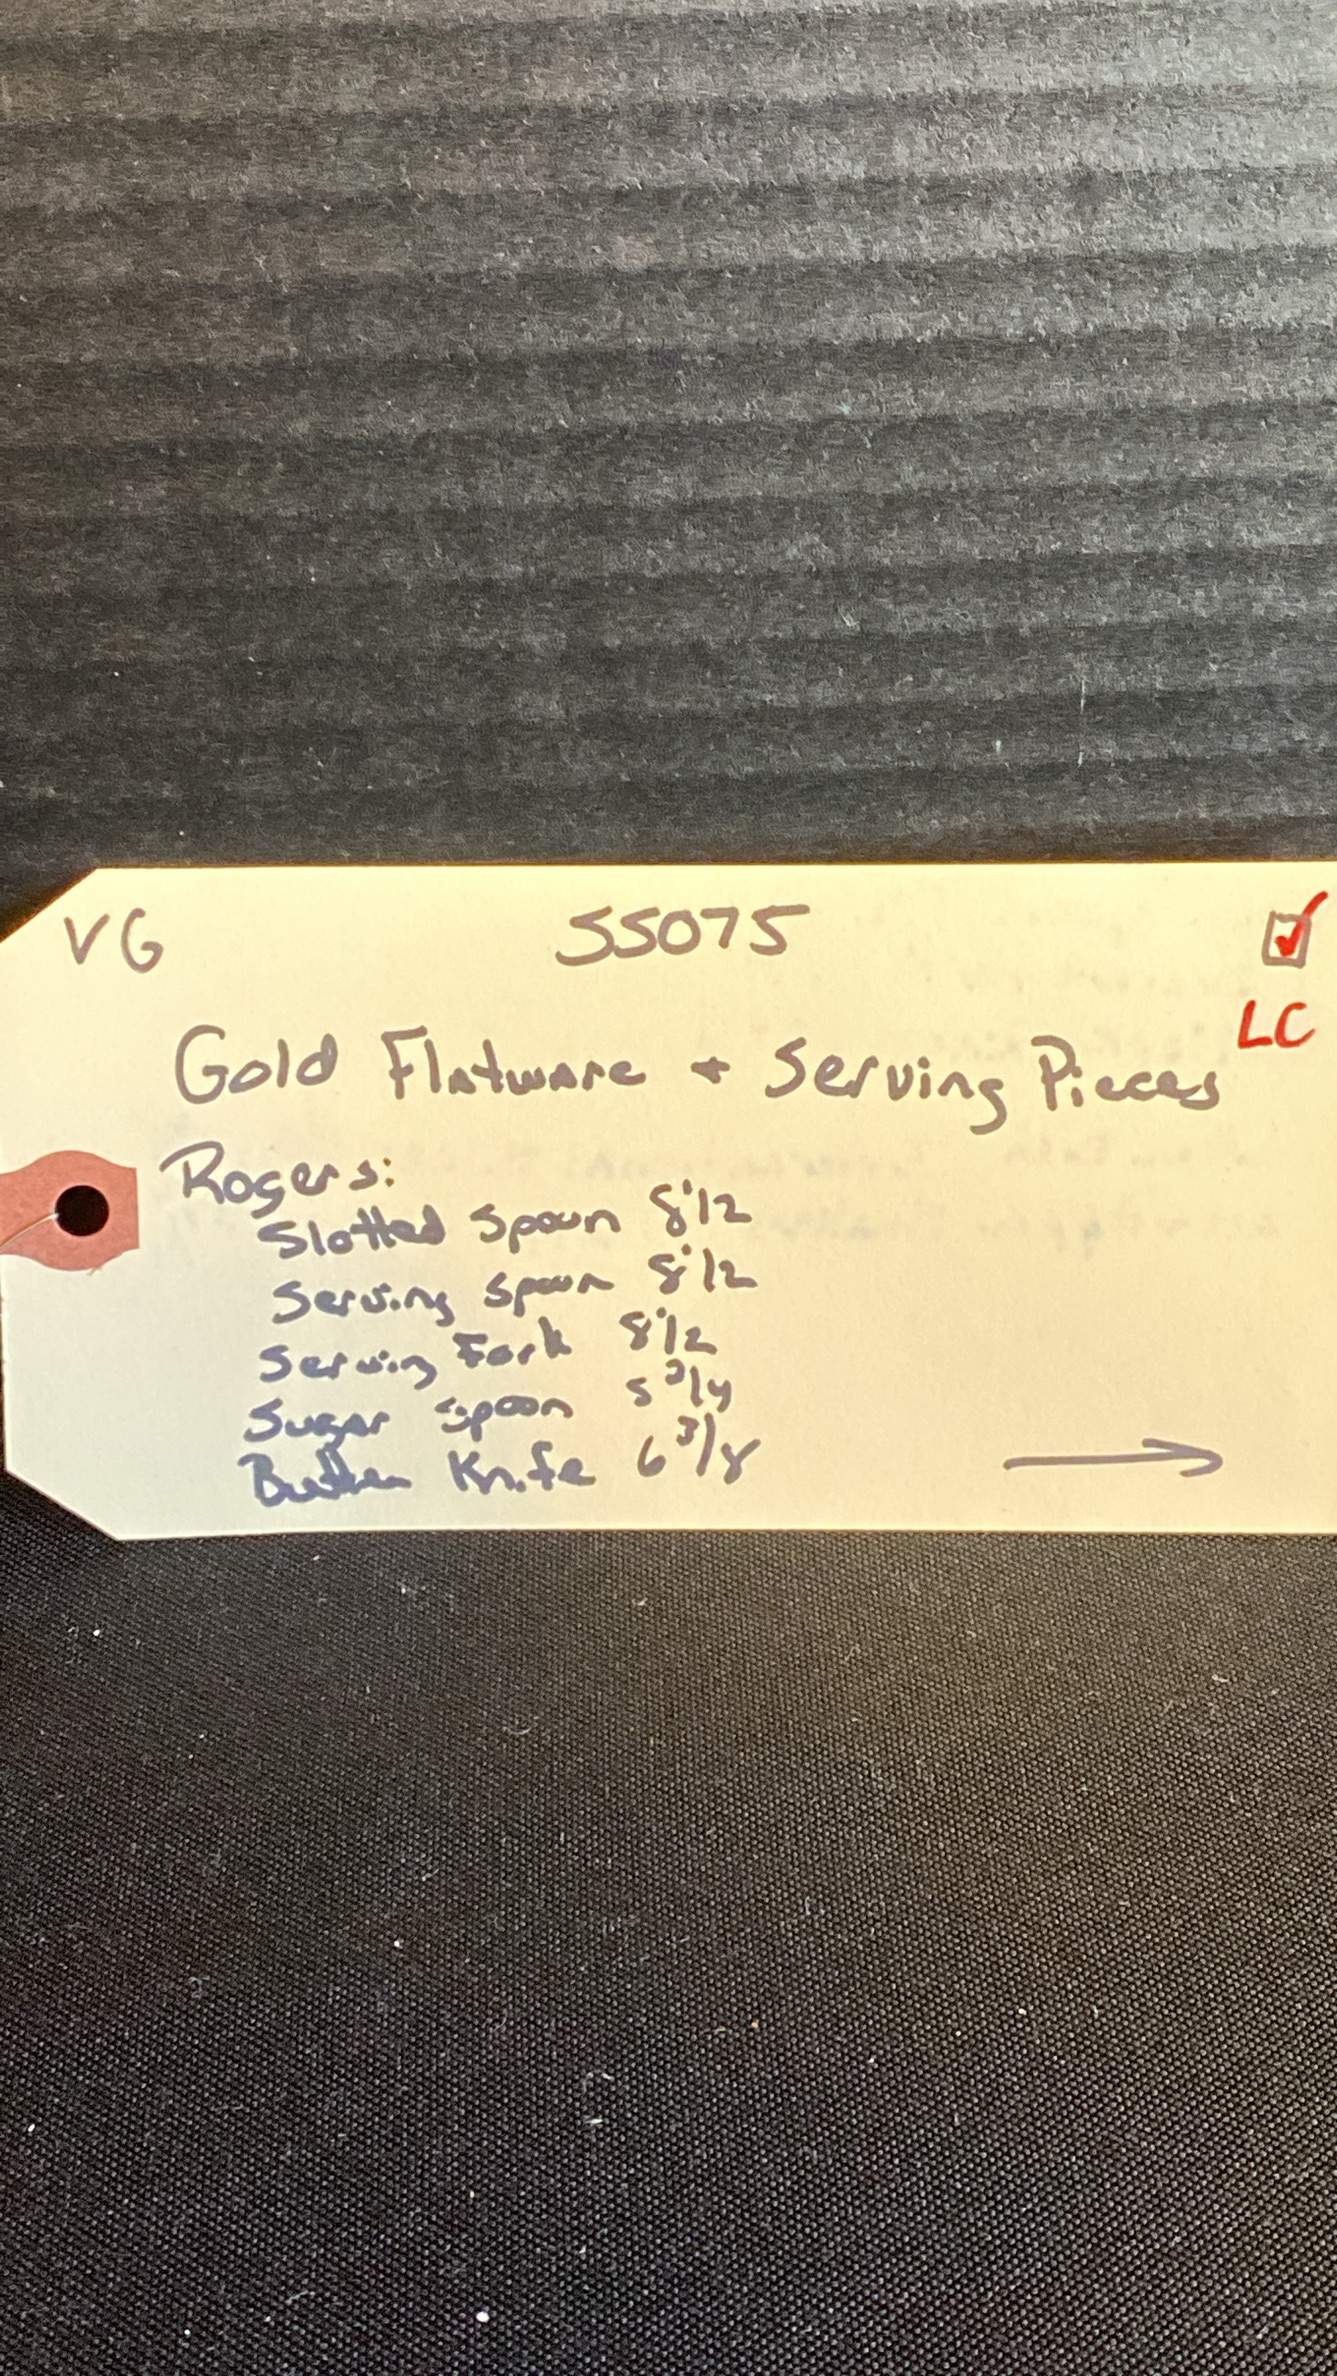 VG SS075
LC
Gold Flatware + Serving Pieces
Rogers:
Slotted Spoon 8 1/2
Serving Spoon 8 1/2
Serving Fork 8 1/2
Sugar Spoon 5 3/4
Butter Knife 6 3/8